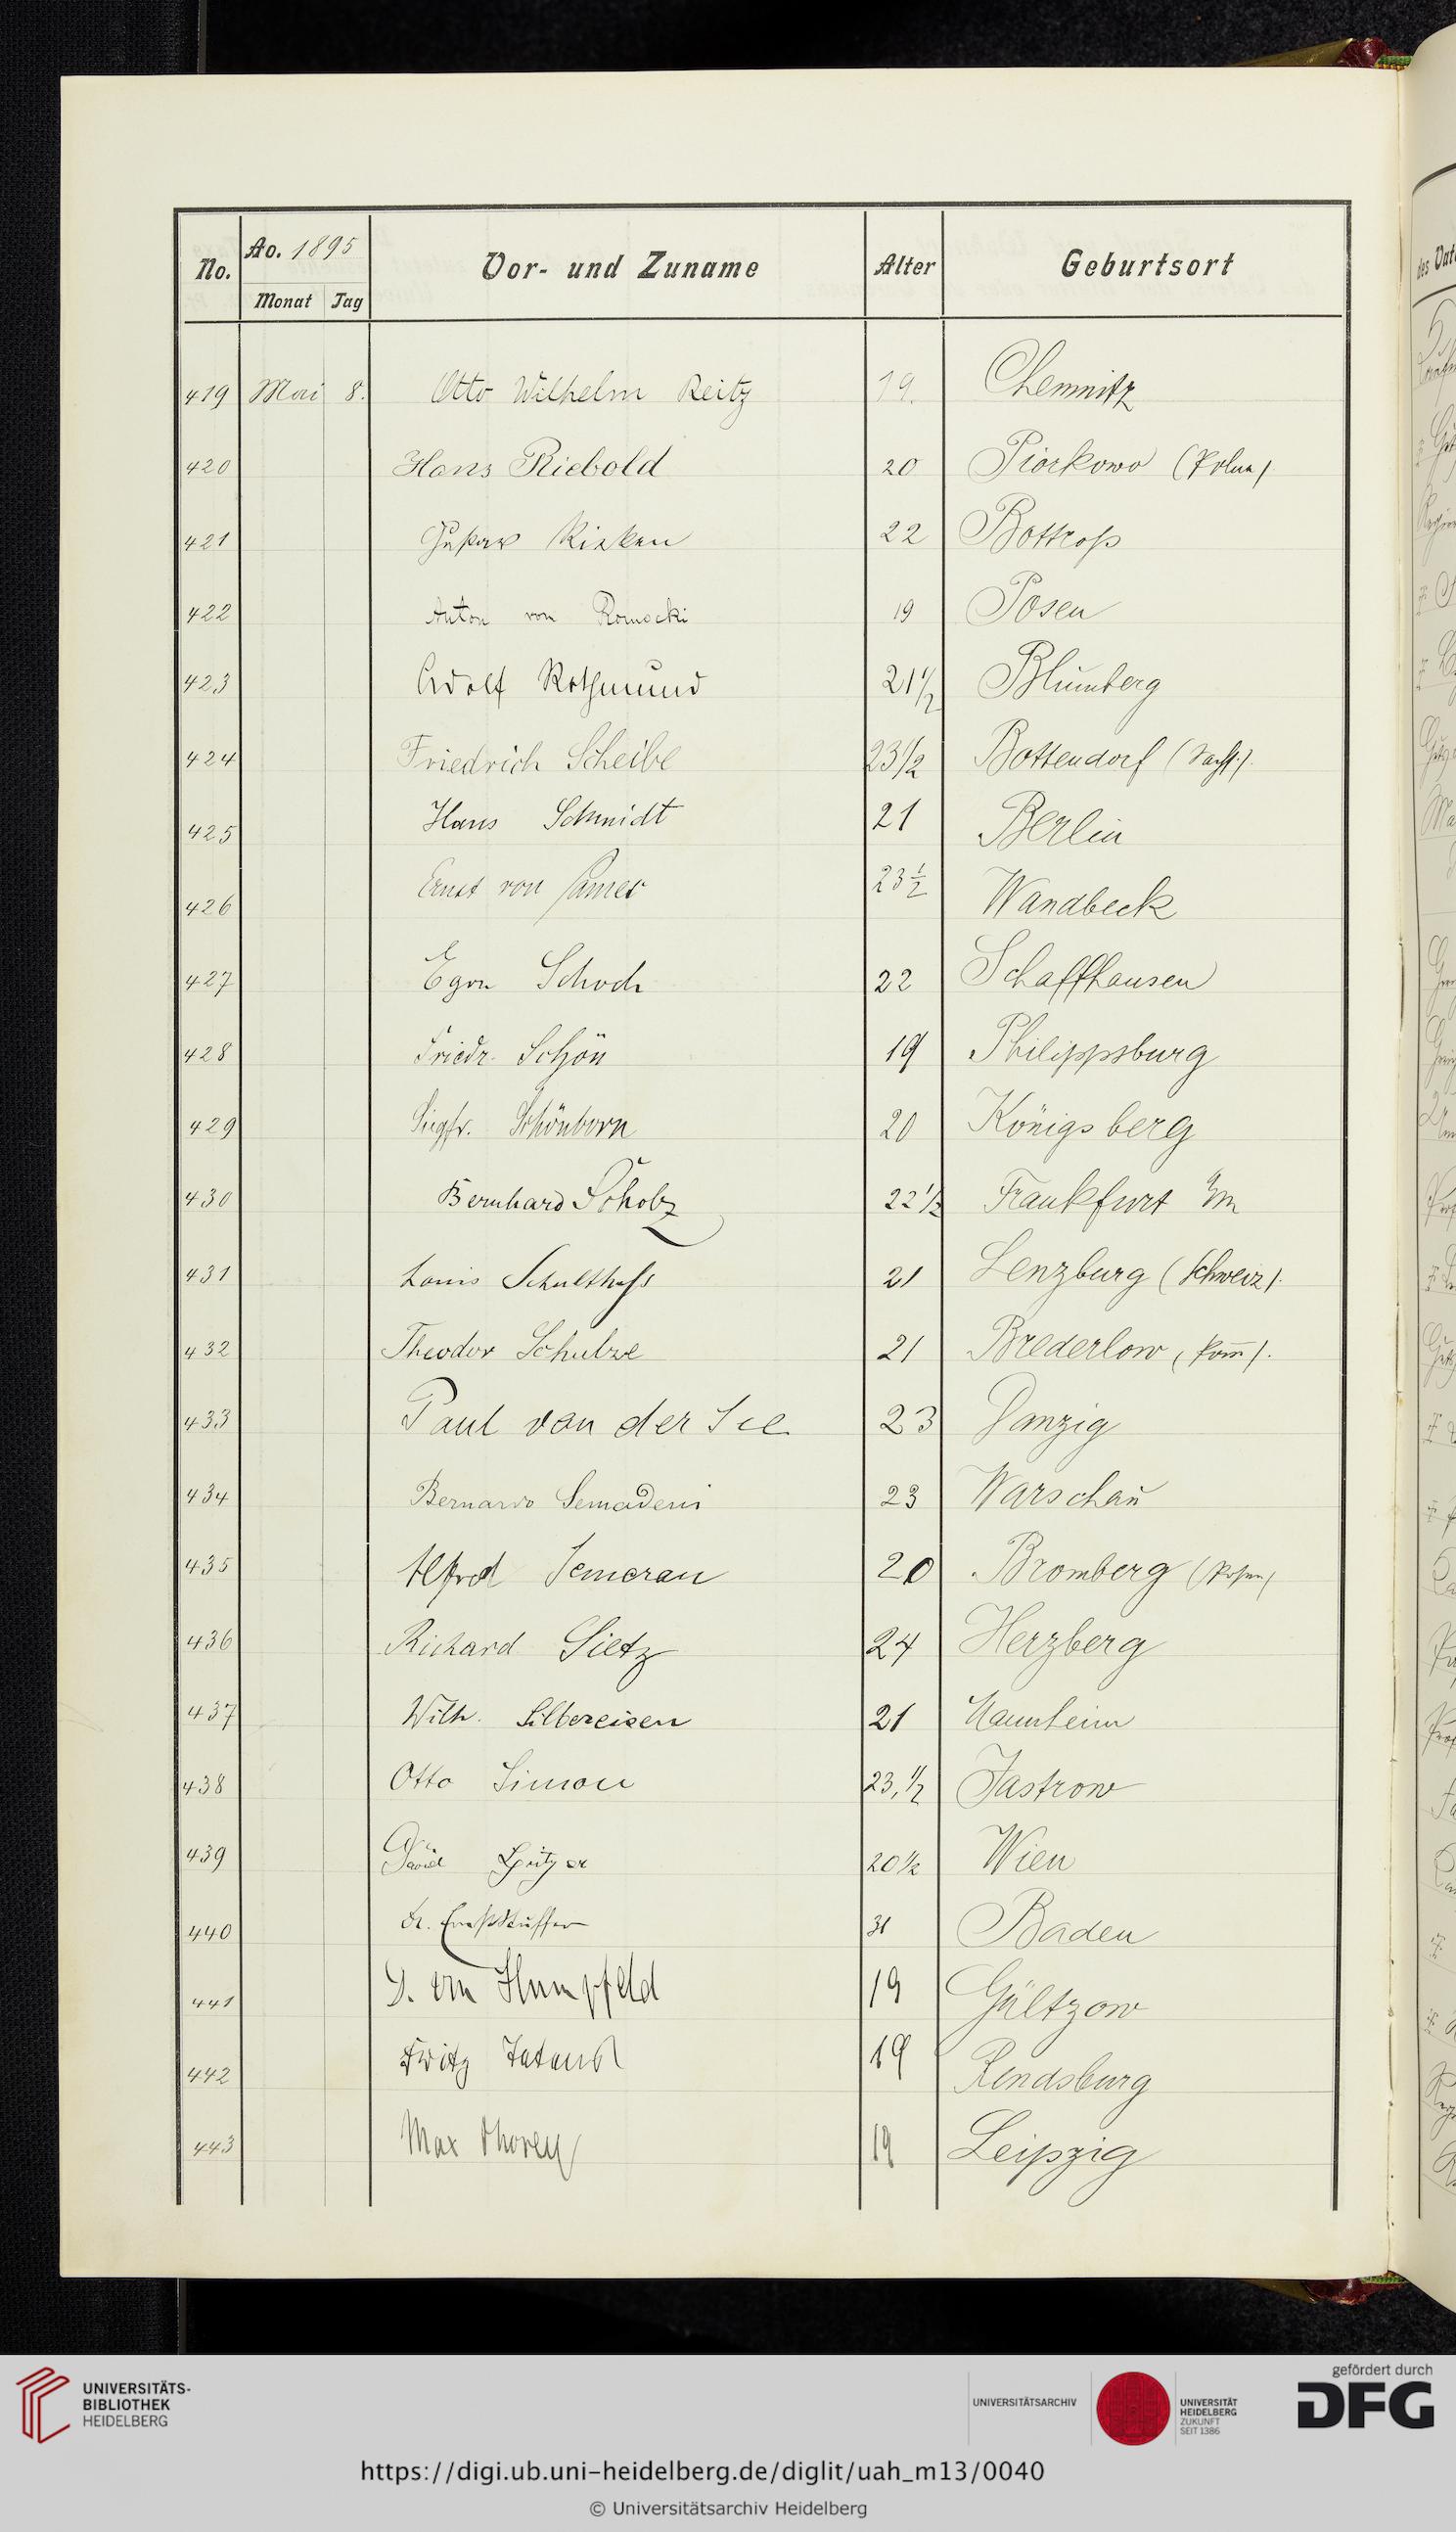 No. Ao. 1895 Vor- und Zuname Alter Geburtsort
Monat Tag
419 Mai 8. Otto Wilhelm Reitz 19. Chemnitz
420 Hans Riebold 20 Piorkowo (Polen)
421 Gustav Risken 22 Bottrop
422 Anton von Romocki 19 Posen
423 Adolf Rothmund 21 1/2 Blumberg
424 Friedrich Scheibe 23 1/2 Bottendorf (Sachs.)
425 Hans Schmidt 21 Berlin
426 Ernst von 23 1/2 Wandbeck
427 Egon Schoch 22 Schaffhausen
428 Friedr. Schön 19 Philippsburg
429 Siegfr. Schönborn 20 Königsberg
430 Bernhard Scholz 22 1/2 Frankfurt a/m
431 Louis Schulthess 21 Lenzburg (Schweiz).
432 Theodor Schulze 21 Brederlow (Pom̅).
433 Paul van der See 23 Danzig
434 Bernardo Semadeni 23 Warschau
435 Alfred Semerau 20 Bromberg (Posen)
436 Richard Sietz 24 Herzberg
437 Wilh. Silbereisen 21 Mannheim
438 Otto Simon 23, 1/2 Jastrow
439 David Spitzer 20 1/2 Wien
440 Dr. Ernst 31 Baden
441 von 19 Gültzow
442 Fritz 19 Rendsburg
443 Max 19 Leipzig
des
UNIVERSITÄTS-
BIBLIOTHEK
HEIDELBERG
UNIVERSITÄTSARCHIV
UNIVERSITÄT
HEIDELBERG
ZUKUNFT
SEIT 1386
gefördert durch
DFG
https://digi.ub.uni-heidelberg.de/diglit/uah_m13/0040
© Universitätsarchiv Heidelberg